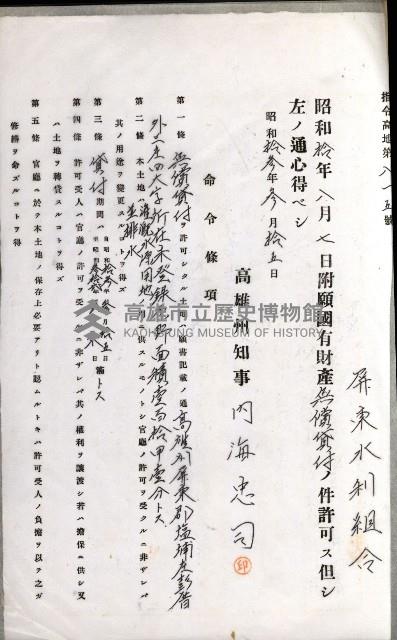 指令高地第八一五號
屏東水利組合
昭和拾年八月七日附願國有財產無償貸付ノ件許可ス但シ
左ノ通心得ベシ
昭和拾參年參月拾五日
高雄州知事 內海忠司
印
命令條項
第一條 無償貸付ヲ許可シタル土地ハ願書記載ノ通高雄州屏東郡塩埔庄彭厝
外一庄四大字所在未登錄原野面積壹百拾甲壹分トス
第二條 本土地ハ灌漑水源用地並排水ニ供スルモノトシ官廳ノ許可ヲ受クルニ非ザレバ
其ノ用途ヲ變更スルコトヲ得ズ
第三條 貸付期間ハ自昭和拾參年參月拾五日至昭和 年 月 日滿 トス
第四條 許可受人ハ官廳ノ許可ヲ受クルニ非ザレバ其ノ權利ヲ讓渡シ若ハ擔保ニ供シ又
ハ土地ヲ轉貸スルコトヲ得ズ
第五條 官廳ニ於テ本土地ノ保存上必要アリト認ムルトキハ許可受人ノ負擔ヲ以テ之ガ
修繕ヲ命ズルコトヲ得
高雄市立歷史博物館
KAOHSIUNG MUSEUM OF HISTORY